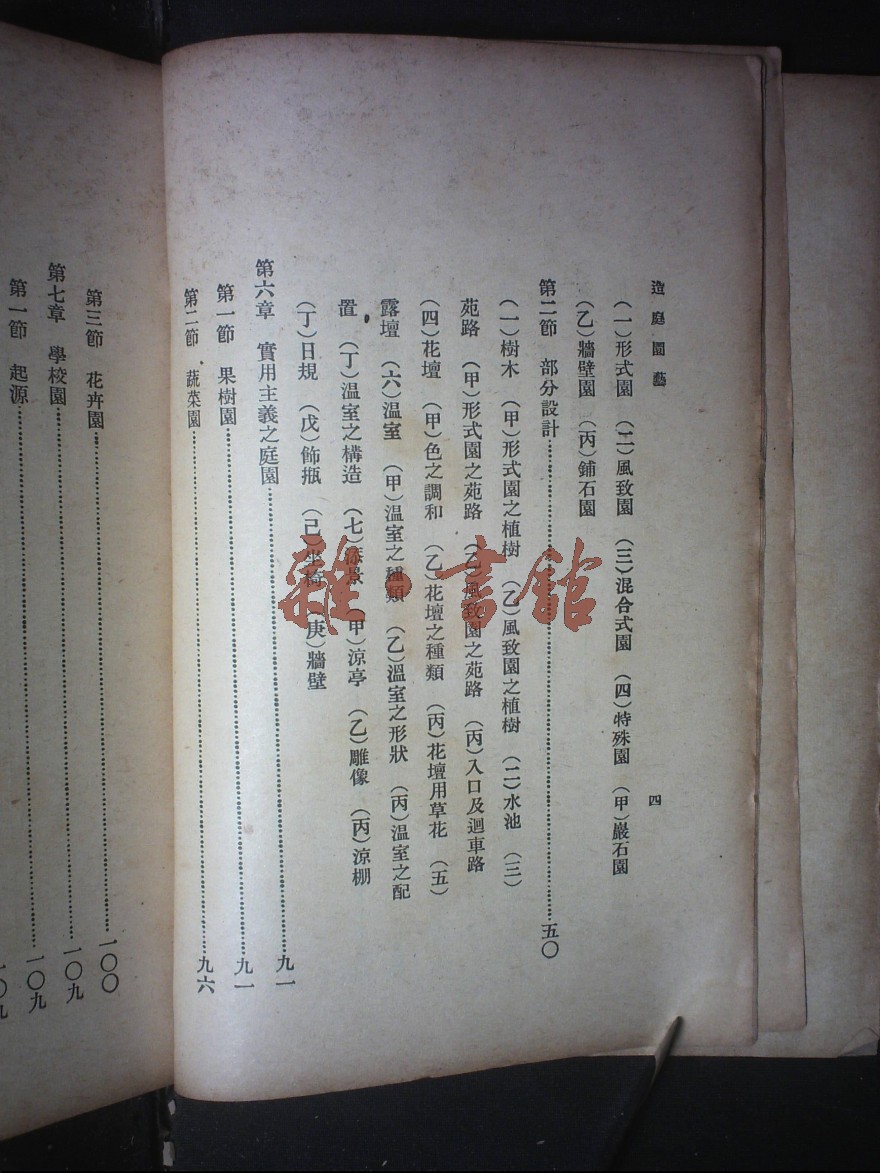 造庭園藝
四
（一）形式園　（二）風致園　（三）混合式園　（四）特殊園　（甲）巖石園
（乙）牆壁園　（丙）鋪石園
第二節　部分設計……五〇
（一）樹木　（甲）形式園之植樹　（乙）風致園之植樹　（二）水池　（三）
苑路　（甲）形式園之苑路　（乙）風致園之苑路　（丙）入口及迴車路
（四）花壇　（甲）色之調和　（乙）花壇之種類　（丙）花壇用草花　（五）
露壇　（六）温室　（甲）温室之種類　（乙）溫室之形狀　（丙）温室之配
置　（丁）温室之構造　（七）添景　（甲）涼亭　（乙）雕像　（丙）涼棚
（丁）日規　（戊）飾瓶　（己）坐椅　（庚）牆壁
第六章　實用主義之庭園……九一
第一節　果樹園……九一
第二節　蔬菜園……九六
第三節　花卉園……一〇〇
第七章　學校園……一〇九
第一節　起源……一〇九
一〇九
雜·書館